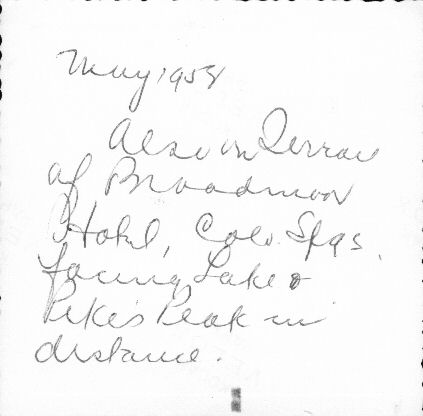 May 1958
Also on Terrace
of Broadmoor
Hotel, Colo. Spgs.
facing Lake &
Pike's Peak in
distance.